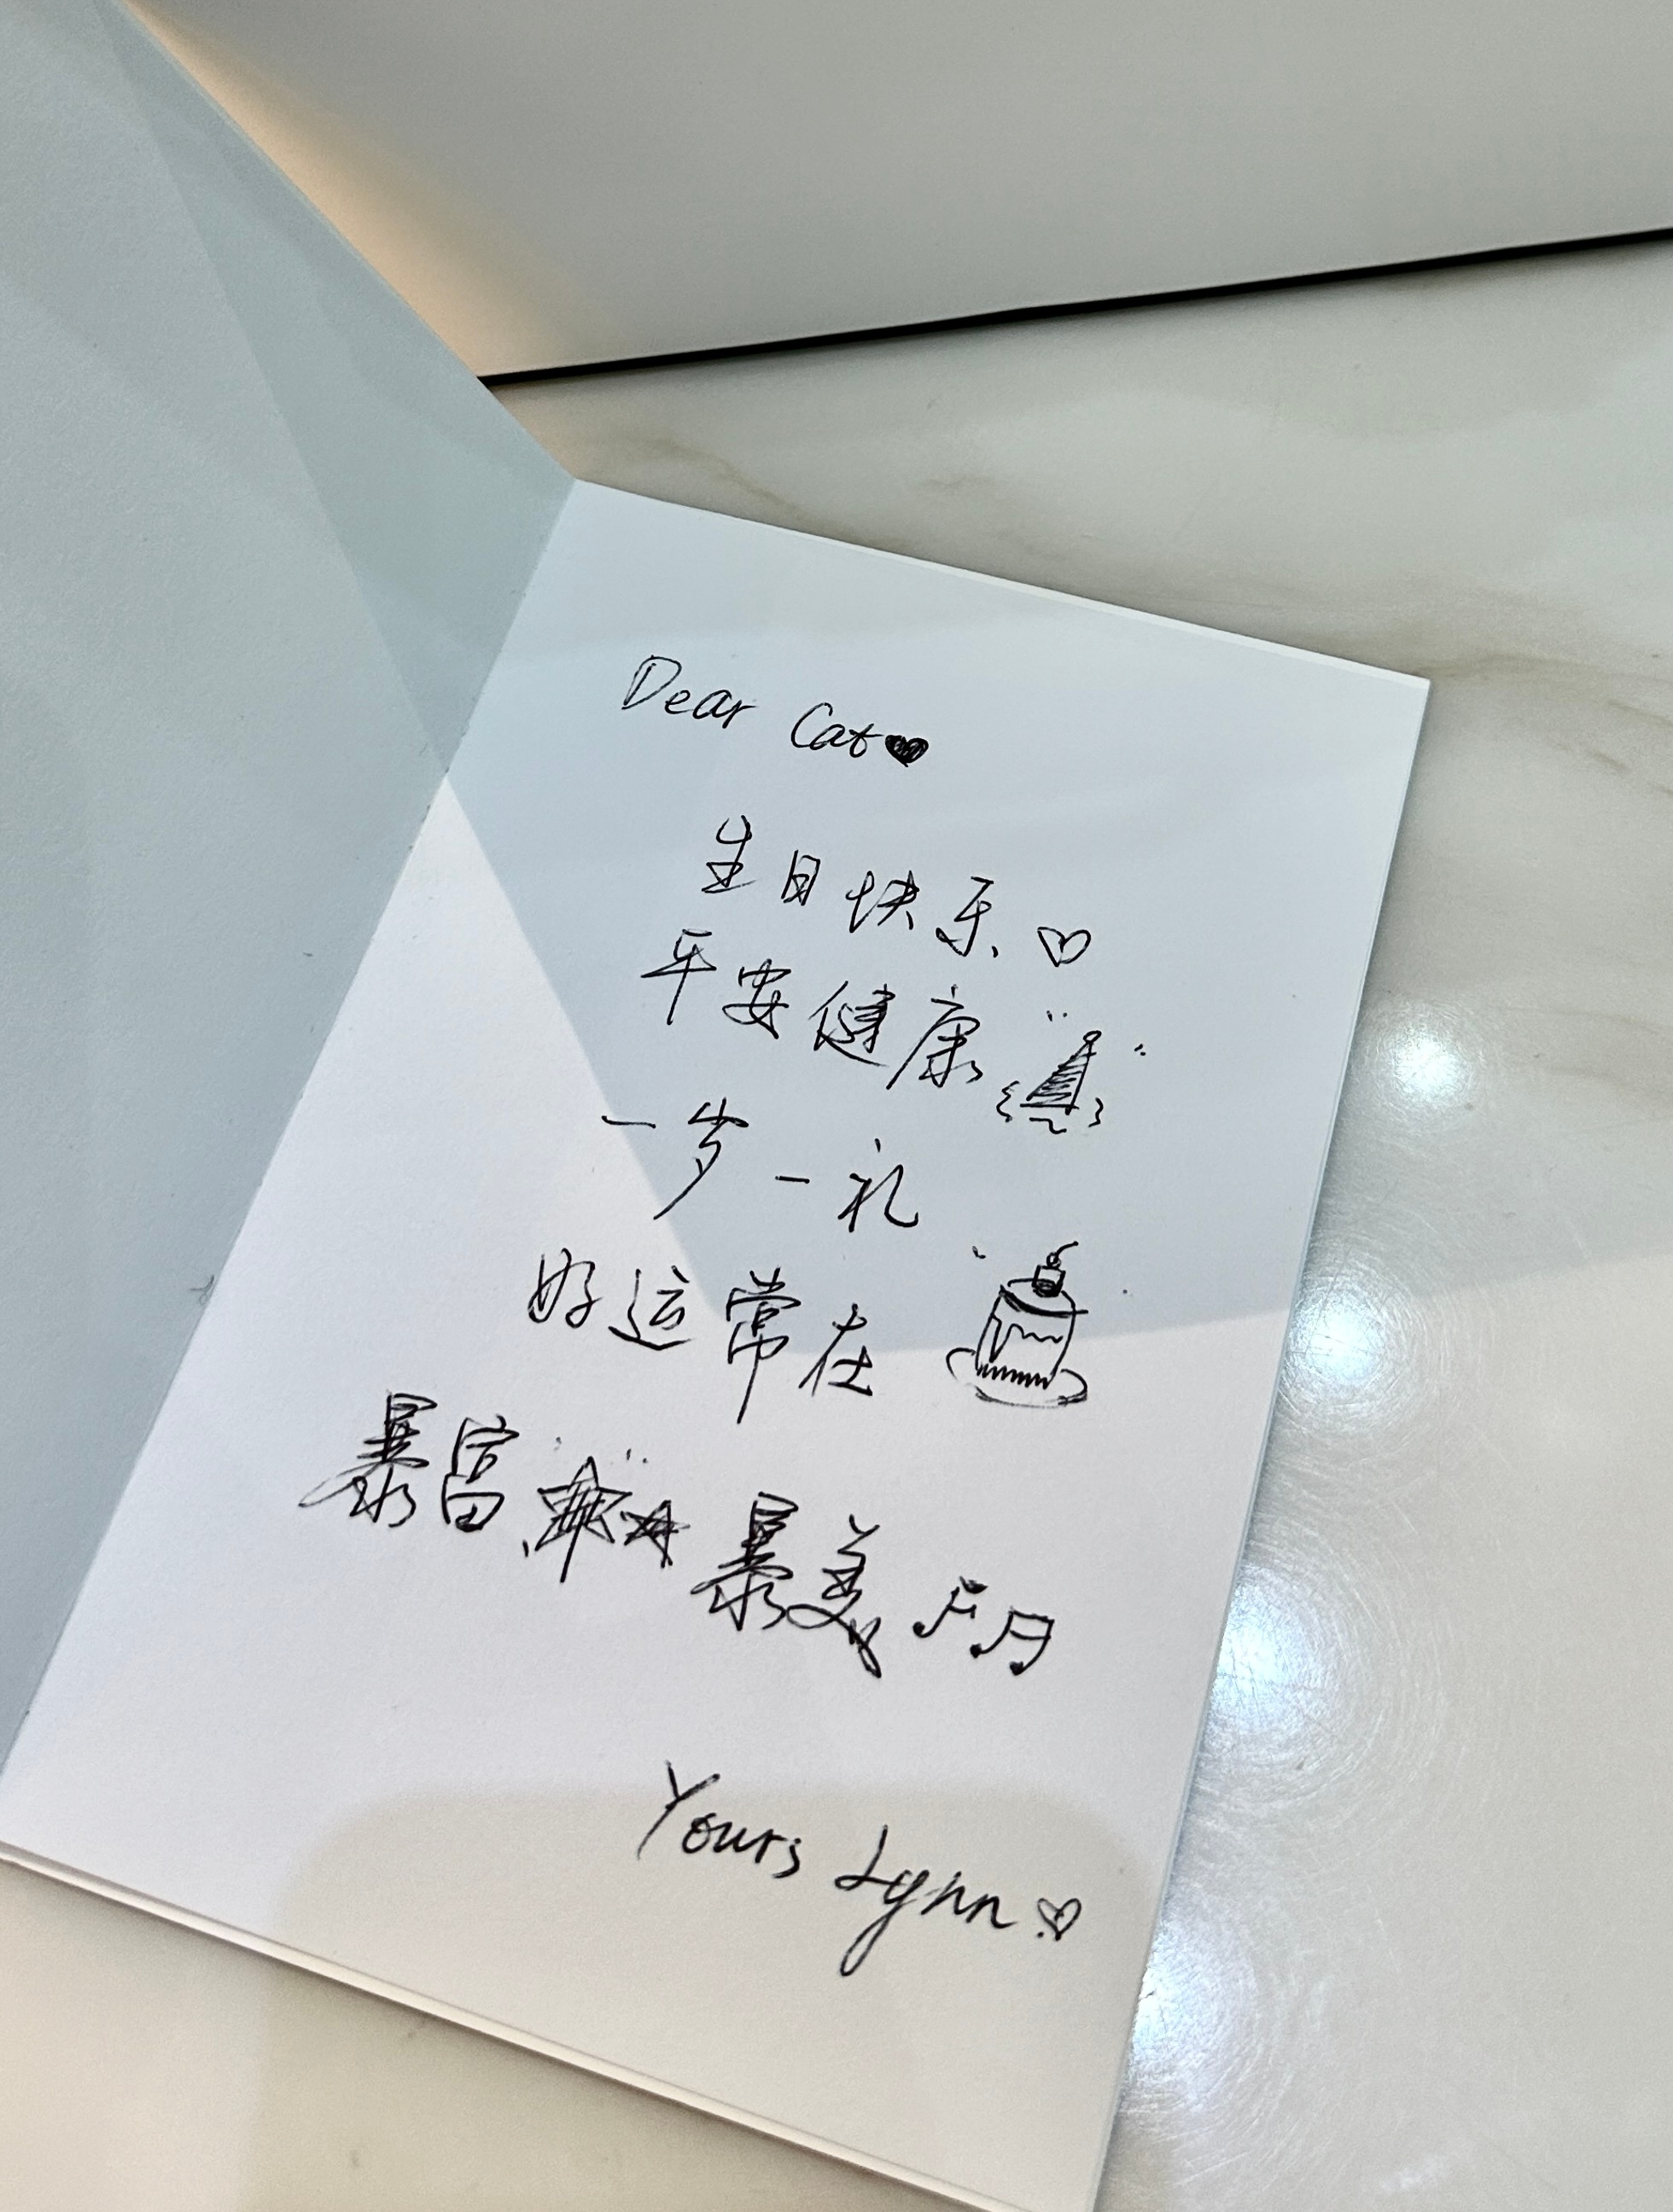 Dear Cat♥
生日快乐♡
平安健康
一岁一礼
好运常在
暴富 暴美
Yours Lynn♡